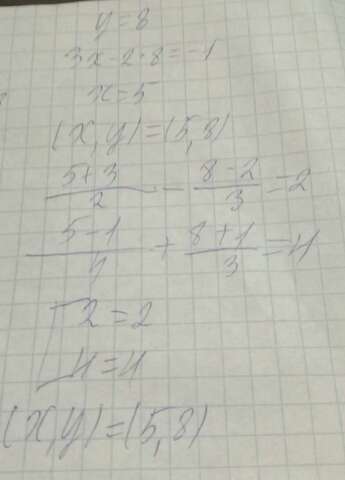 y=8
3x-2·8=-1
x=5
(x,y)=(5,8)
(5+3)/2 - (8-2)/3 =2
(5-1)/4 + (8+1)/3 =4
[2=2
4=4
(x,y)=(5,8)